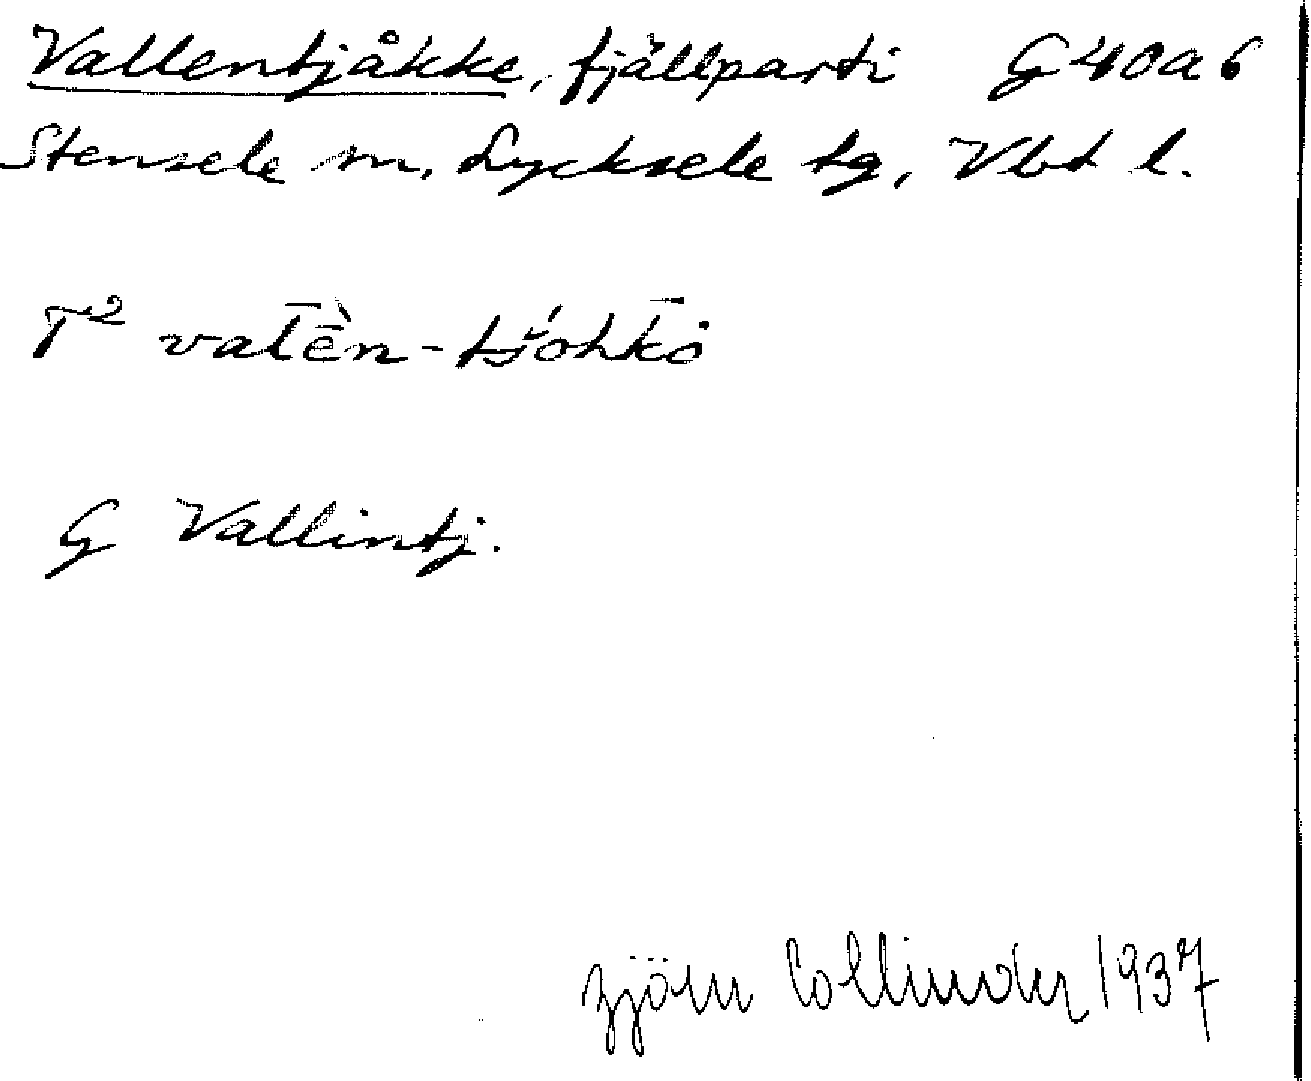 Vallentjåkke, fjällparti G40a6
Stensele sn, Lycksele tg, Vbt l.
T²
G Vallintj.
Björn Collinder 1937